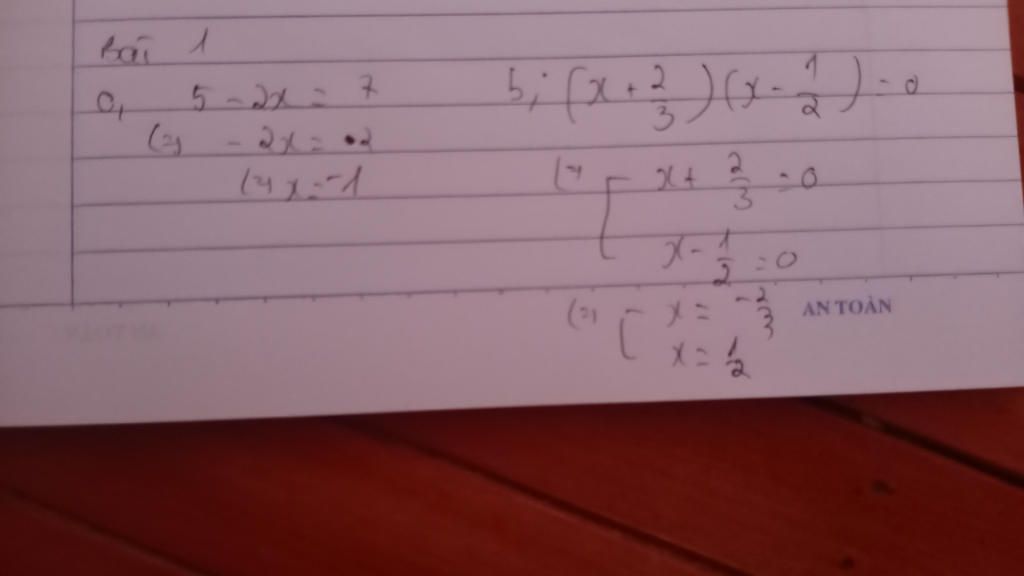 Bài 1
a, 5 - 2x = 7
(=) - 2x = 2
(=) x = -1
b, (x + 2/3)(x - 1/2) = 0
(=) [ x + 2/3 = 0
x - 1/2 = 0
(=) [ x = -2/3
x = 1/2
AN TOÀN